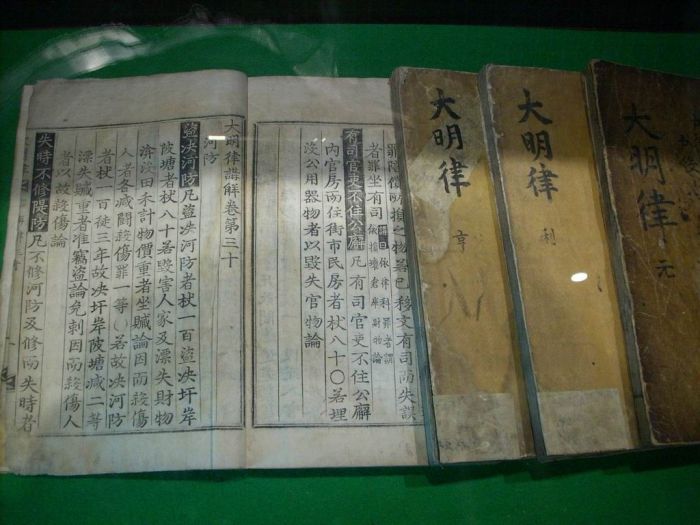 大明律 元
大明律 利
大明律 亨
罪陪償所損之物若已移文有司而失誤
者罪坐有司
講曰依律科罪者謂
依損壞倉庫財物論
有司官吏不住公廨凡有司官吏不住公廨
內官房而住街市民房者杖八十○若埋
沒公用器物者以毀失官物論
大明律講解卷第三十
河防
盜決河防凡盜決河防者杖一百盜決圩岸
陂塘者杖八十若毀害人家及漂失財物
渰沒田禾計物價重者坐贓論因而殺傷
人者各減鬪殺傷罪一等○若故決河防
者杖一百徒三年故決圩岸陂塘減二等
漂失贓重者准竊盜論免刺因而殺傷人
者以故殺傷論
失時不修隄防凡不修河防及修而失時者